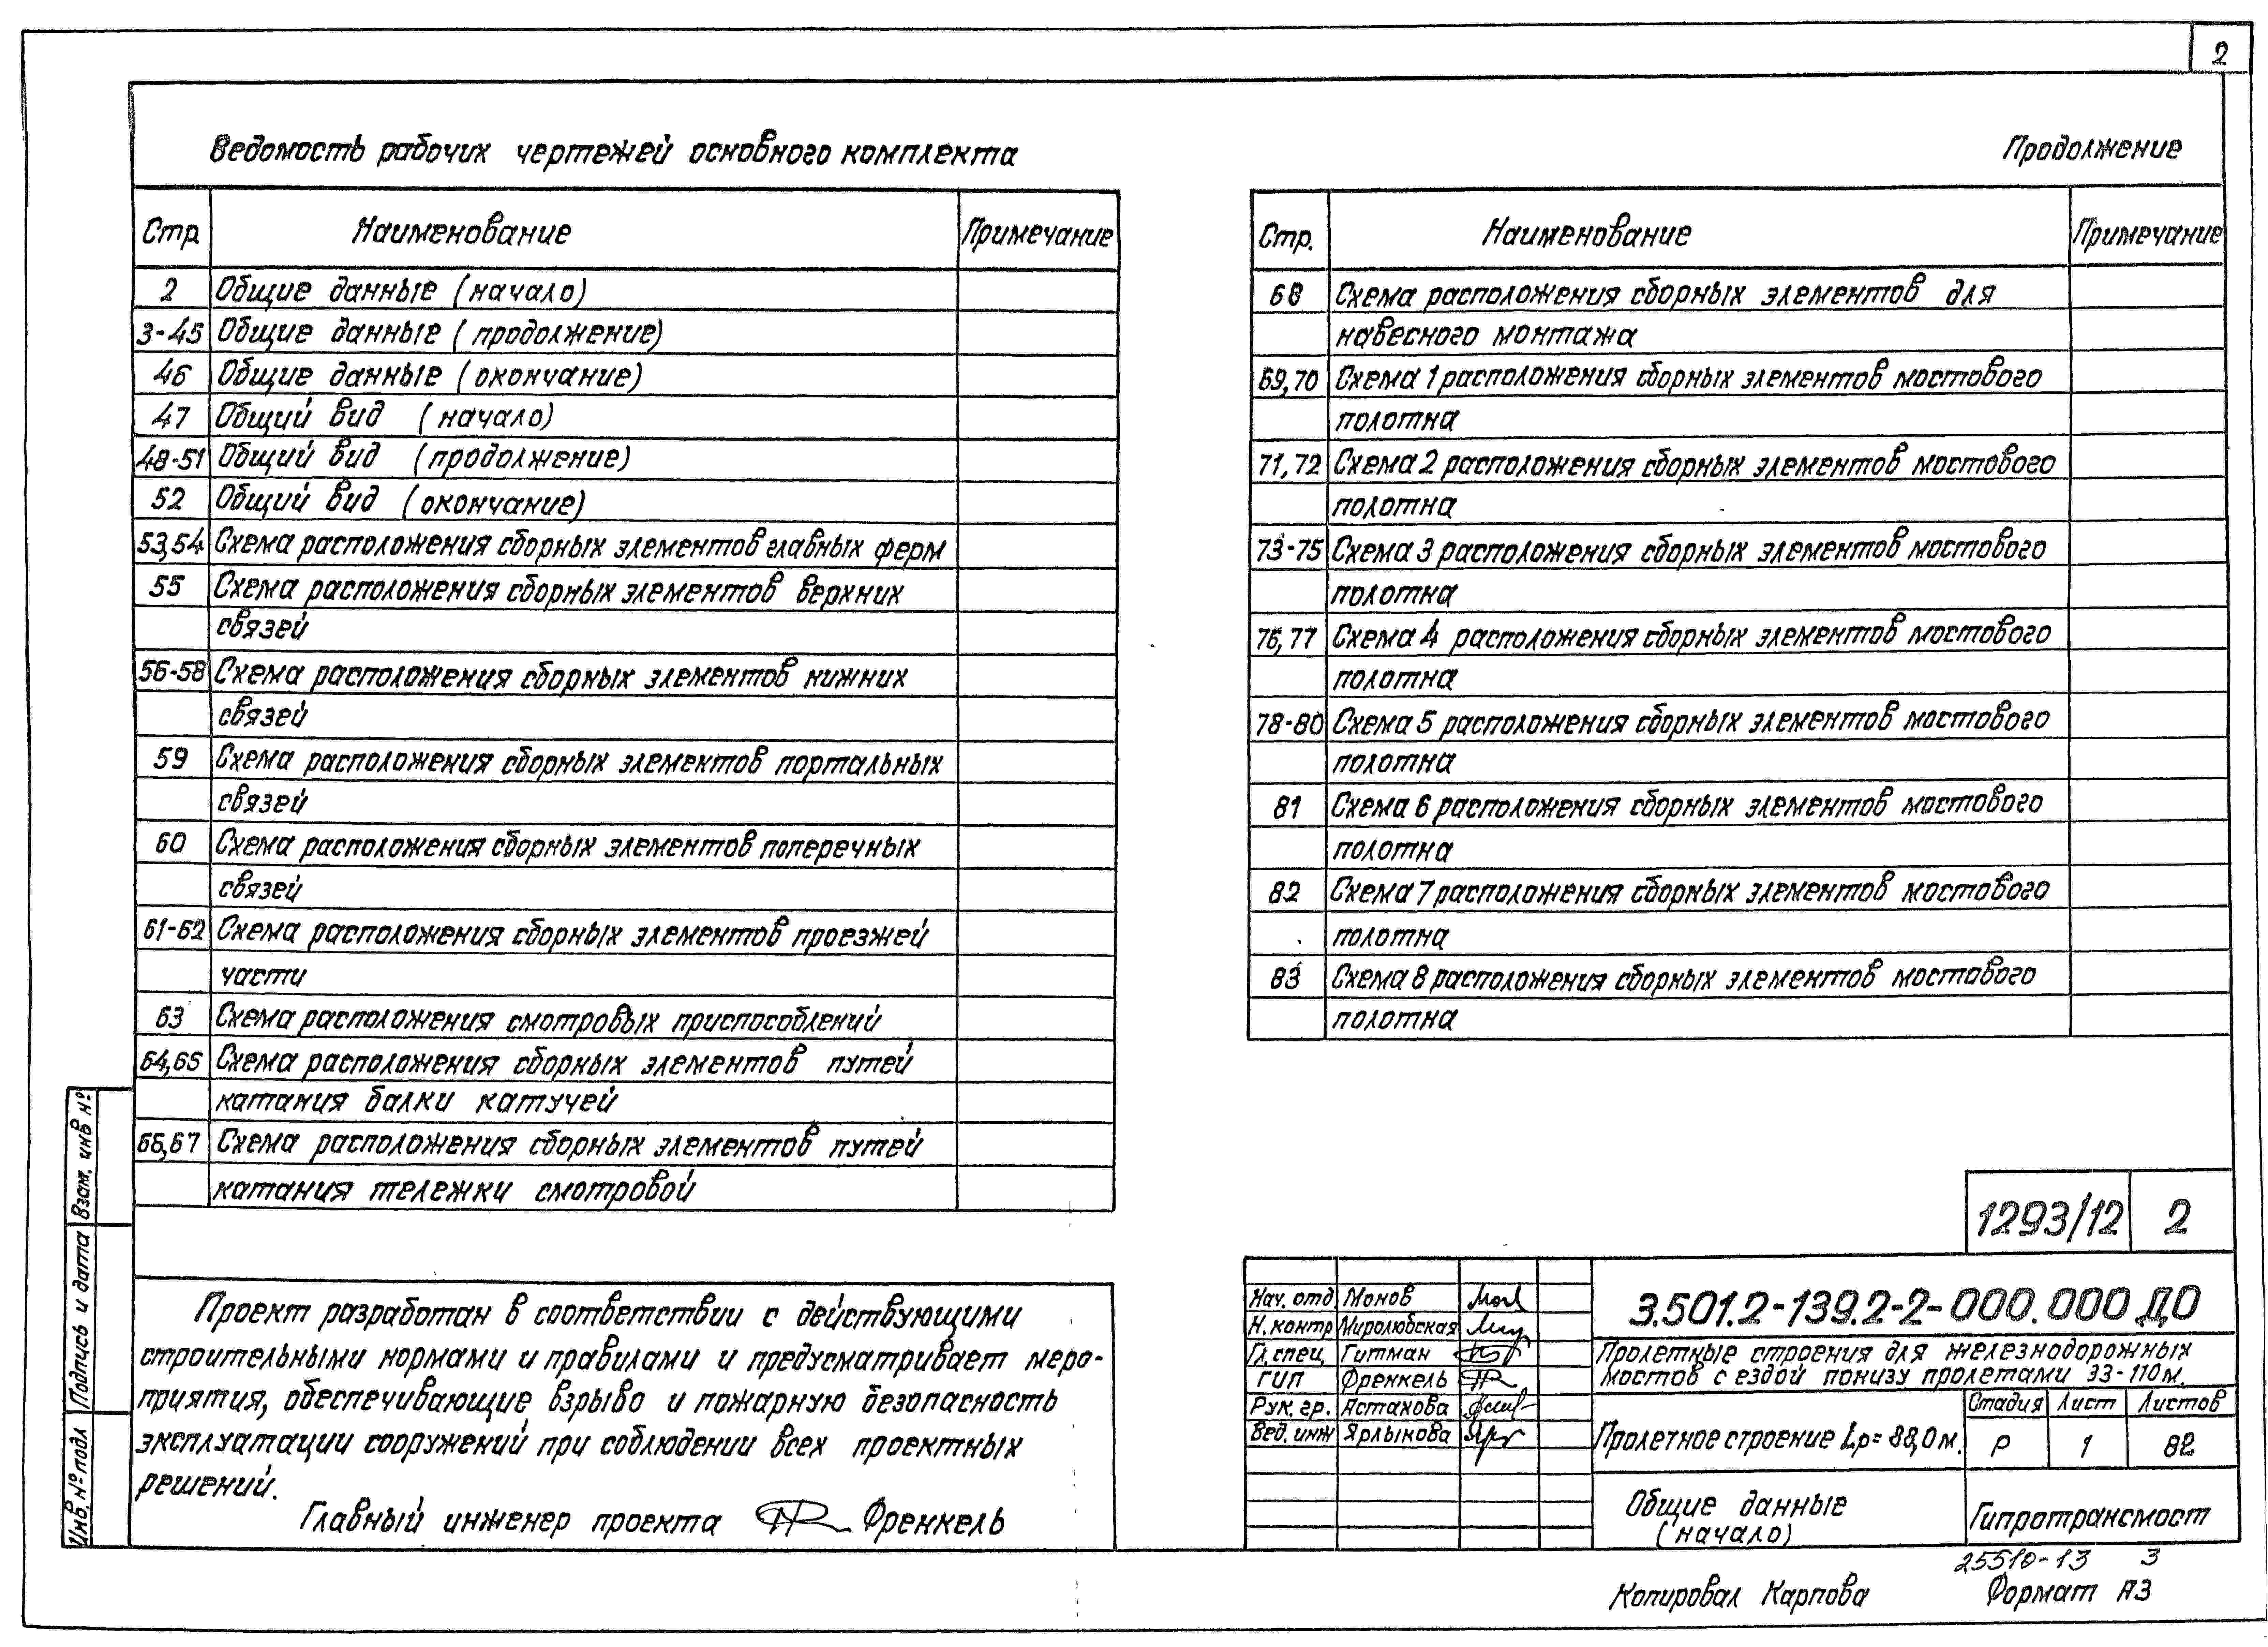 2
Ведомость рабочих чертежей основного комплекта
Стр. Наименование Примечание
2 Общие данные (начало)
3-45 Общие данные (продолжение)
46 Общие данные (окончание)
47 Общий вид (начало)
48-51 Общий вид (продолжение)
52 Общий вид (окончание)
53,54 Схема расположения сборных элементов главных ферм
55 Схема расположения сборных элементов верхних
связей
56-58 Схема расположения сборных элементов нижних
связей
59 Схема расположения сборных элементов портальных
связей
60 Схема расположения сборных элементов поперечных
связей
61-62 Схема расположения сборных элементов проезжей
части
63 Схема расположения смотровых приспособлений
64,65 Схема расположения сборных элементов путей
катания балки катучей
66,67 Схема расположения сборных элементов путей
катания тележки смотровой
Продолжение
Стр. Наименование Примечание
68 Схема расположения сборных элементов для
навесного монтажа
69,70 Схема 1 расположения сборных элементов мостового
полотна
71,72 Схема 2 расположения сборных элементов мостового
полотна
73-75 Схема 3 расположения сборных элементов мостового
полотна
76,77 Схема 4 расположения сборных элементов мостового
полотна
78-80 Схема 5 расположения сборных элементов мостового
полотна
81 Схема 6 расположения сборных элементов мостового
полотна
82 Схема 7 расположения сборных элементов мостового
полотна
83 Схема 8 расположения сборных элементов мостового
полотна
Проект разработан в соответствии с действующими
строительными нормами и правилами и предусматривает меро-
приятия, обеспечивающие взрыво и пожарную безопасность
эксплуатации сооружений при соблюдении всех проектных
решений.
Главный инженер проекта Френкель
Взам. инв №
Подпись и дата
Инв. № подл
1293/12 2
Нач. отд Монов
Н. контр Миролюбская
Гл. спец Гитман
ГИП Френкель
Рук. гр. Астахова
Вед. инж Ярлыкова
3.501.2-139.2-2-000.000 ДО
Пролетные строения для железнодорожных
мостов с ездой понизу пролетами 33-110м.
Пролетное строение Lр= 88,0м.
Стадия Лист Листов
Р 1 82
Общие данные
(начало)
Гипротрансмост
25510-13 3
Копировал Карпова Формат А3